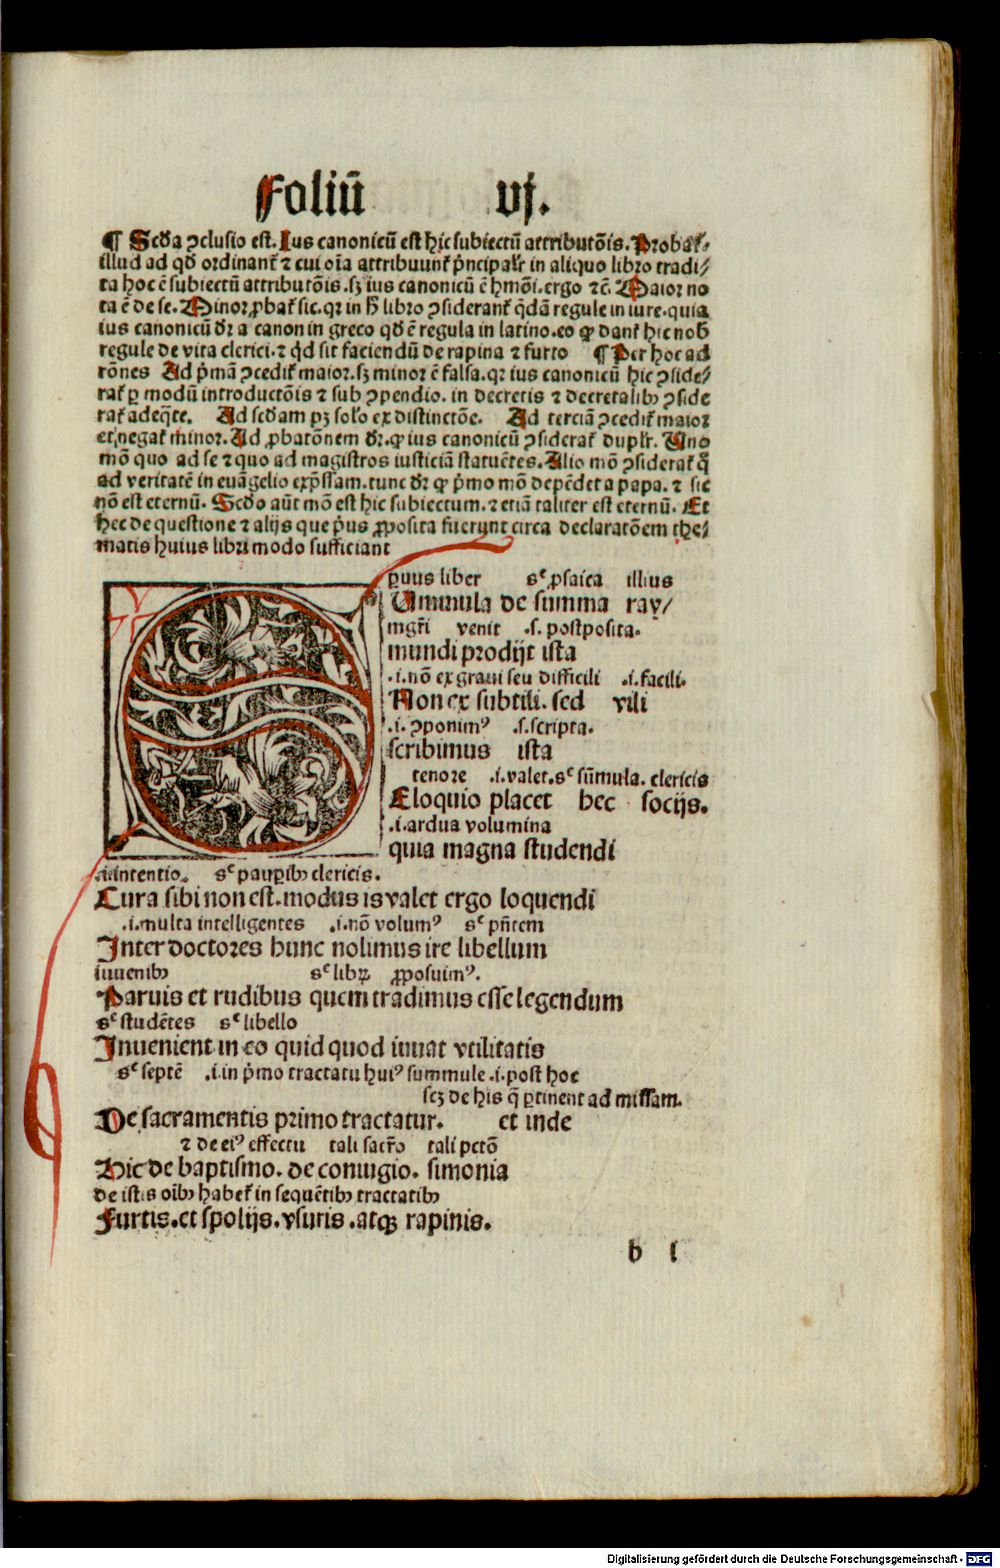 Foliū vj.
¶ Scd̄a ꝯclusio est. Ius canonicū est hic subiectū attributōis. Probat᷑.
illud ad qđ ordinant᷑ ⁊ cui oīa attribuunt᷑ p̄ncipalr̄ in aliquo libro tradi/
ta hoc ē subiectū attributōis. sꝫ ius canonicū ē hmōi. ergo ⁊c̄. Maior no
ta ē de se. Minor ꝓbat᷑ sic. qꝛ in h̄ libro ꝯsiderant᷑ q̄dā regule in iure. quia
ius canonicū dr̄ a canon in greco qđ ē regula in latino. eo ꝙ dant᷑ hic nob̄
regule de vita clerici. ⁊ qͥd sit faciendū de rapina ⁊ furto ¶ Per hoc ad
rōnes Ad p̄mā ꝯcedit᷑ maior. sꝫ minor ē falsa. qꝛ ius canonicū hic ꝯside/
rat᷑ ꝑ modū introductōis ⁊ sub ꝯpendio. in decretis ⁊ decretalibꝰ ꝯside
rat᷑ adeq̄te. Ad scd̄am pꝫ solo ex distinctōe. Ad terciā ꝯcedit᷑ maior
et negat᷑ minor. Ad ꝓbatōnem dr̄. ꝙ ius canonicū ꝯsiderat᷑ duplr̄. Uno
mō quo ad se ⁊ quo ad magistros iusticiā statuētes. Alio mō ꝯsiderat᷑ q̄
ad veritatē in euāgelio exp̄ssam. tunc dr̄ ꝙ p̄mo mō depēdet a papa. ⁊ sic
nō est eternū. Scđo aūt mō est hic subiectum. ⁊ etiā taliter est eternū. Et
hec de questione ⁊ alijs que p̄us ꝓposita fuerunt circa declaratōem the/
matis huius libri modo sufficiant
ꝑuus liber sͨ ꝓsaica illius
Ummula de summa ray/
mgr̄i venit .s. postposita.
mundi prodijt ista
.i. nō ex graui seu difficili .i. facili.
Non ex subtili. sed vili
.i. ꝯponimꝰ .s. scripta.
scribimus ista
tenore .i. valet. sͨ sūmula. clericis
Eloquio placet hec socijs.
.i. ardua volumina
quia magna studendi
.i. intentio. sͨ pauꝑibꝰ clericis.
Cura sibi non est. modus is valet ergo loquendi
.i. multa intelligentes .i. nō volumꝰ sͨ pn̄tem
Inter doctores hunc nolimus ire libellum
iuuenibꝰ sͨ libꝝ ꝓposuimꝰ.
Paruis et rudibus quem tradimus esse legendum
sͨ studētes sͨ libello
Inuenient in eo quid quod iuuat vtilitatis
sͨ septē .i. in p̄mo tractatu huiꝰ summule .i. post hoc
scꝫ de his q̄ ꝑtinent ad missam.
De sacramentis primo tractatur. et inde
⁊ de eiꝰ effectu tali sacr̄o tali pctō
Hic de baptismo. de coniugio. simonia
de istis oībꝰ habet᷑ in sequētibꝰ tractatibꝰ
Furtis. et spolijs. vsuris. atqꝫ rapinis.
b i
Digitalisierung gefördert durch die Deutsche Forschungsgemeinschaft - DFG